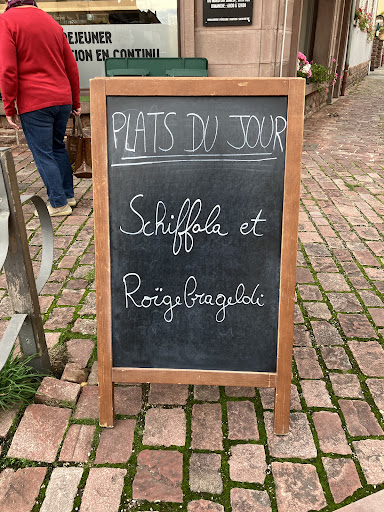 DEJEUNER
ION EN CONTINU
PLATS DU JOUR
Schiffala et
Roïgebrageldi